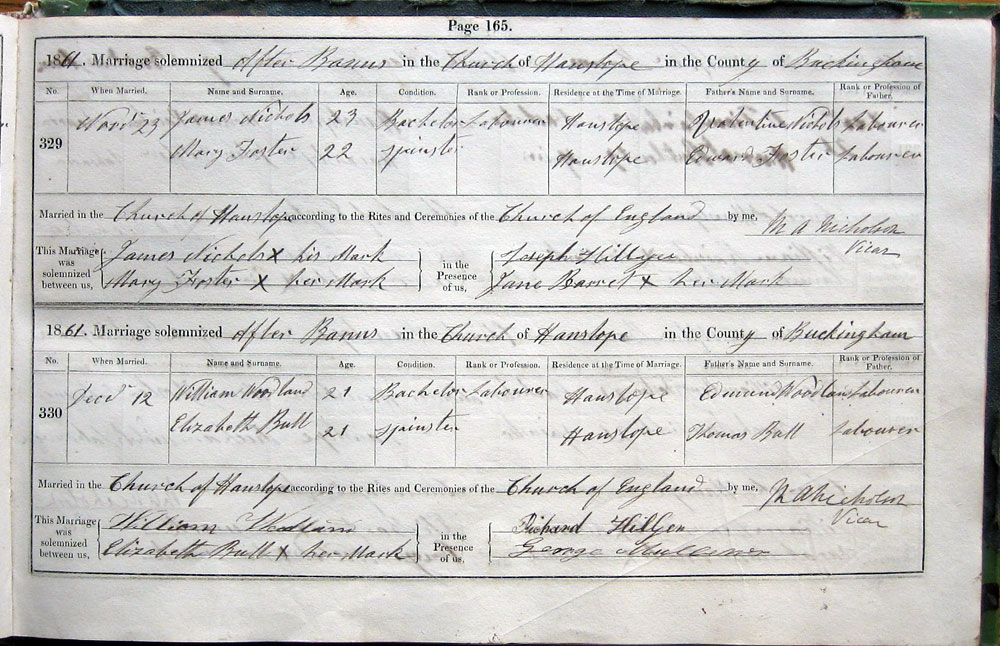 Page 165.
1861. Marriage solemnized After Banns in the Church of Hanslope in the County of Buckingham
No. When Married. Name and Surname. Age. Condition. Rank or Profession. Residence at the Time of Marriage. Father's Name and Surname. Rank or Profession of Father.
329 23 James Nichols 23 Bachelor Labourer Hanslope Valentine Nichols Labourer
Mary Foster 22 Spinster Hanslope Edward Foster Labourer
Married in the Church of Hanslope according to the Rites and Ceremonies of the Church of England by me, M A Nicholson
Vicar
This Marriage was solemnized between us, James Nichols X his Mark in the Presence of us, Joseph Hillyer
Mary Foster X her Mark Jane Barret X her Mark
1861. Marriage solemnized After Banns in the Church of Hanslope in the County of Buckingham
No. When Married. Name and Surname. Age. Condition. Rank or Profession. Residence at the Time of Marriage. Father's Name and Surname. Rank or Profession of Father.
330 Decr 12 William Woodland 21 Bachelor Labourer Hanslope Edmund Woodland Labourer
Elizabeth Bull 21 Spinster Hanslope Thomas Bull Labourer
Married in the Church of Hanslope according to the Rites and Ceremonies of the Church of England by me, M A Nicholson
Vicar
This Marriage was solemnized between us, William in the Presence of us, Richard
Elizabeth Bull X her Mark George